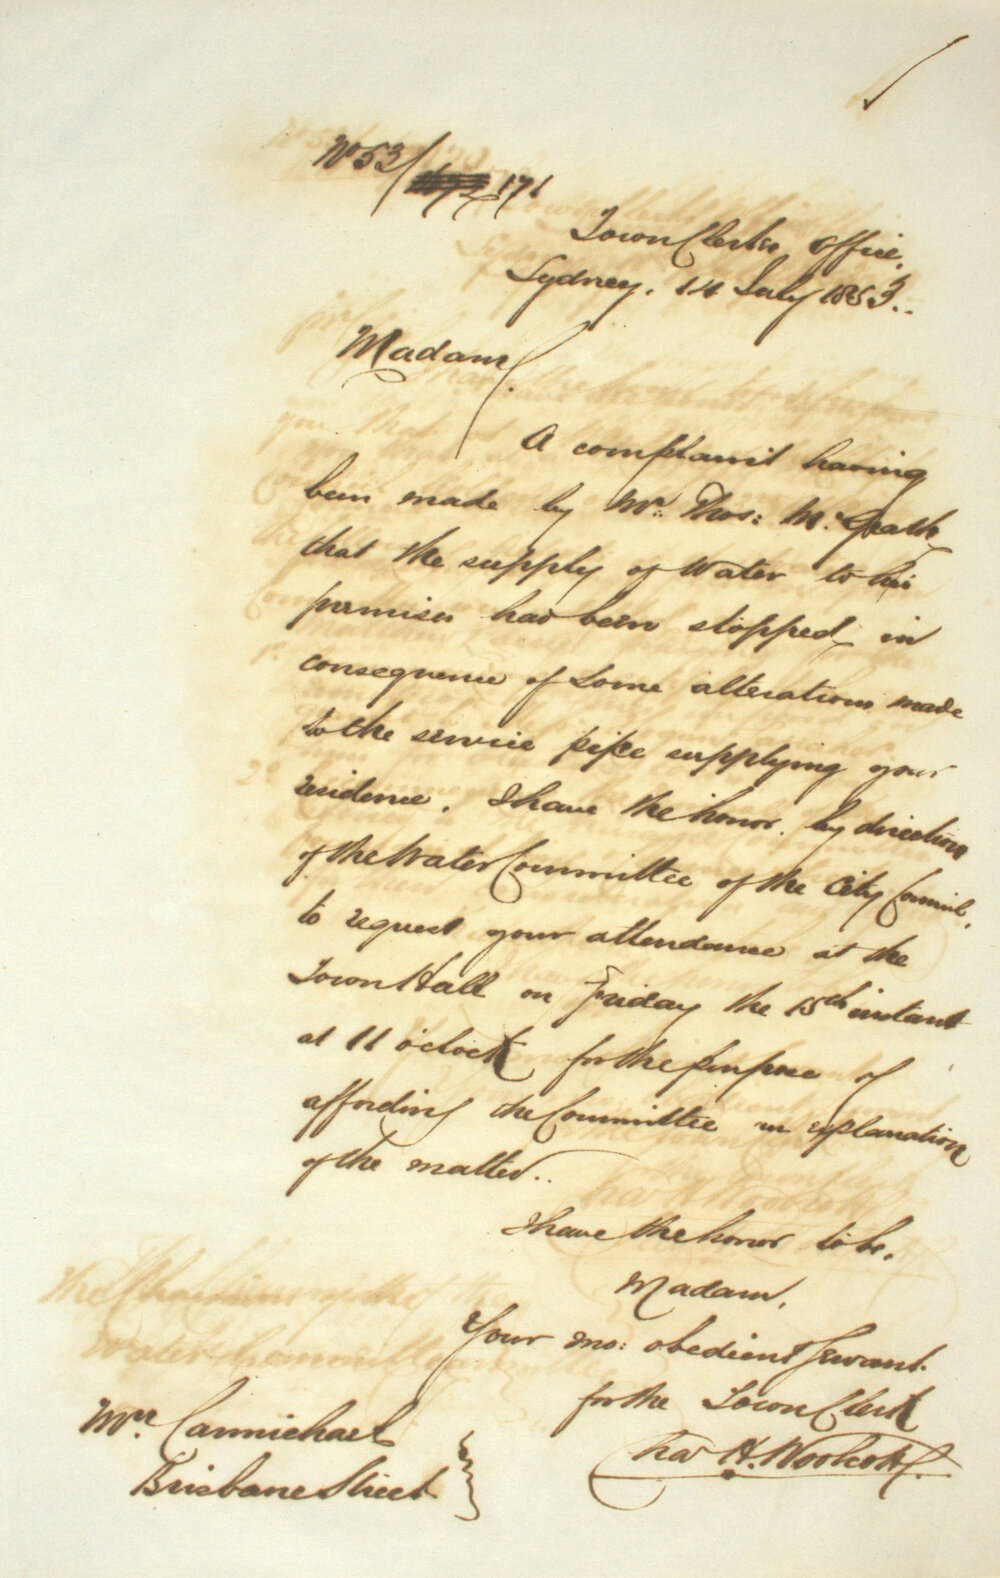 No 53/ 171
Town Clerks Office,
Sydney. 14 July 1853..
Madam
A complaint having
been made by Mr. Thos: McGrath
that the supply of Water to his
premises had been stopped, in
consequence of some alterations made
to the service pipe supplying your
residence. I have the honor, by direction
of the Water Committee of the City Council,
to request your attendance at the
Town Hall on Friday the 15th instant
at 11 o'clock for the purpose of
affording the Committee an explanation
of the matter..
I have the honor to be,
Madam,
Your mo: obedient Servant.
for the Town Clerk
Chas H. Woolcott.
Mrs. Carmichael
Brisbane Street